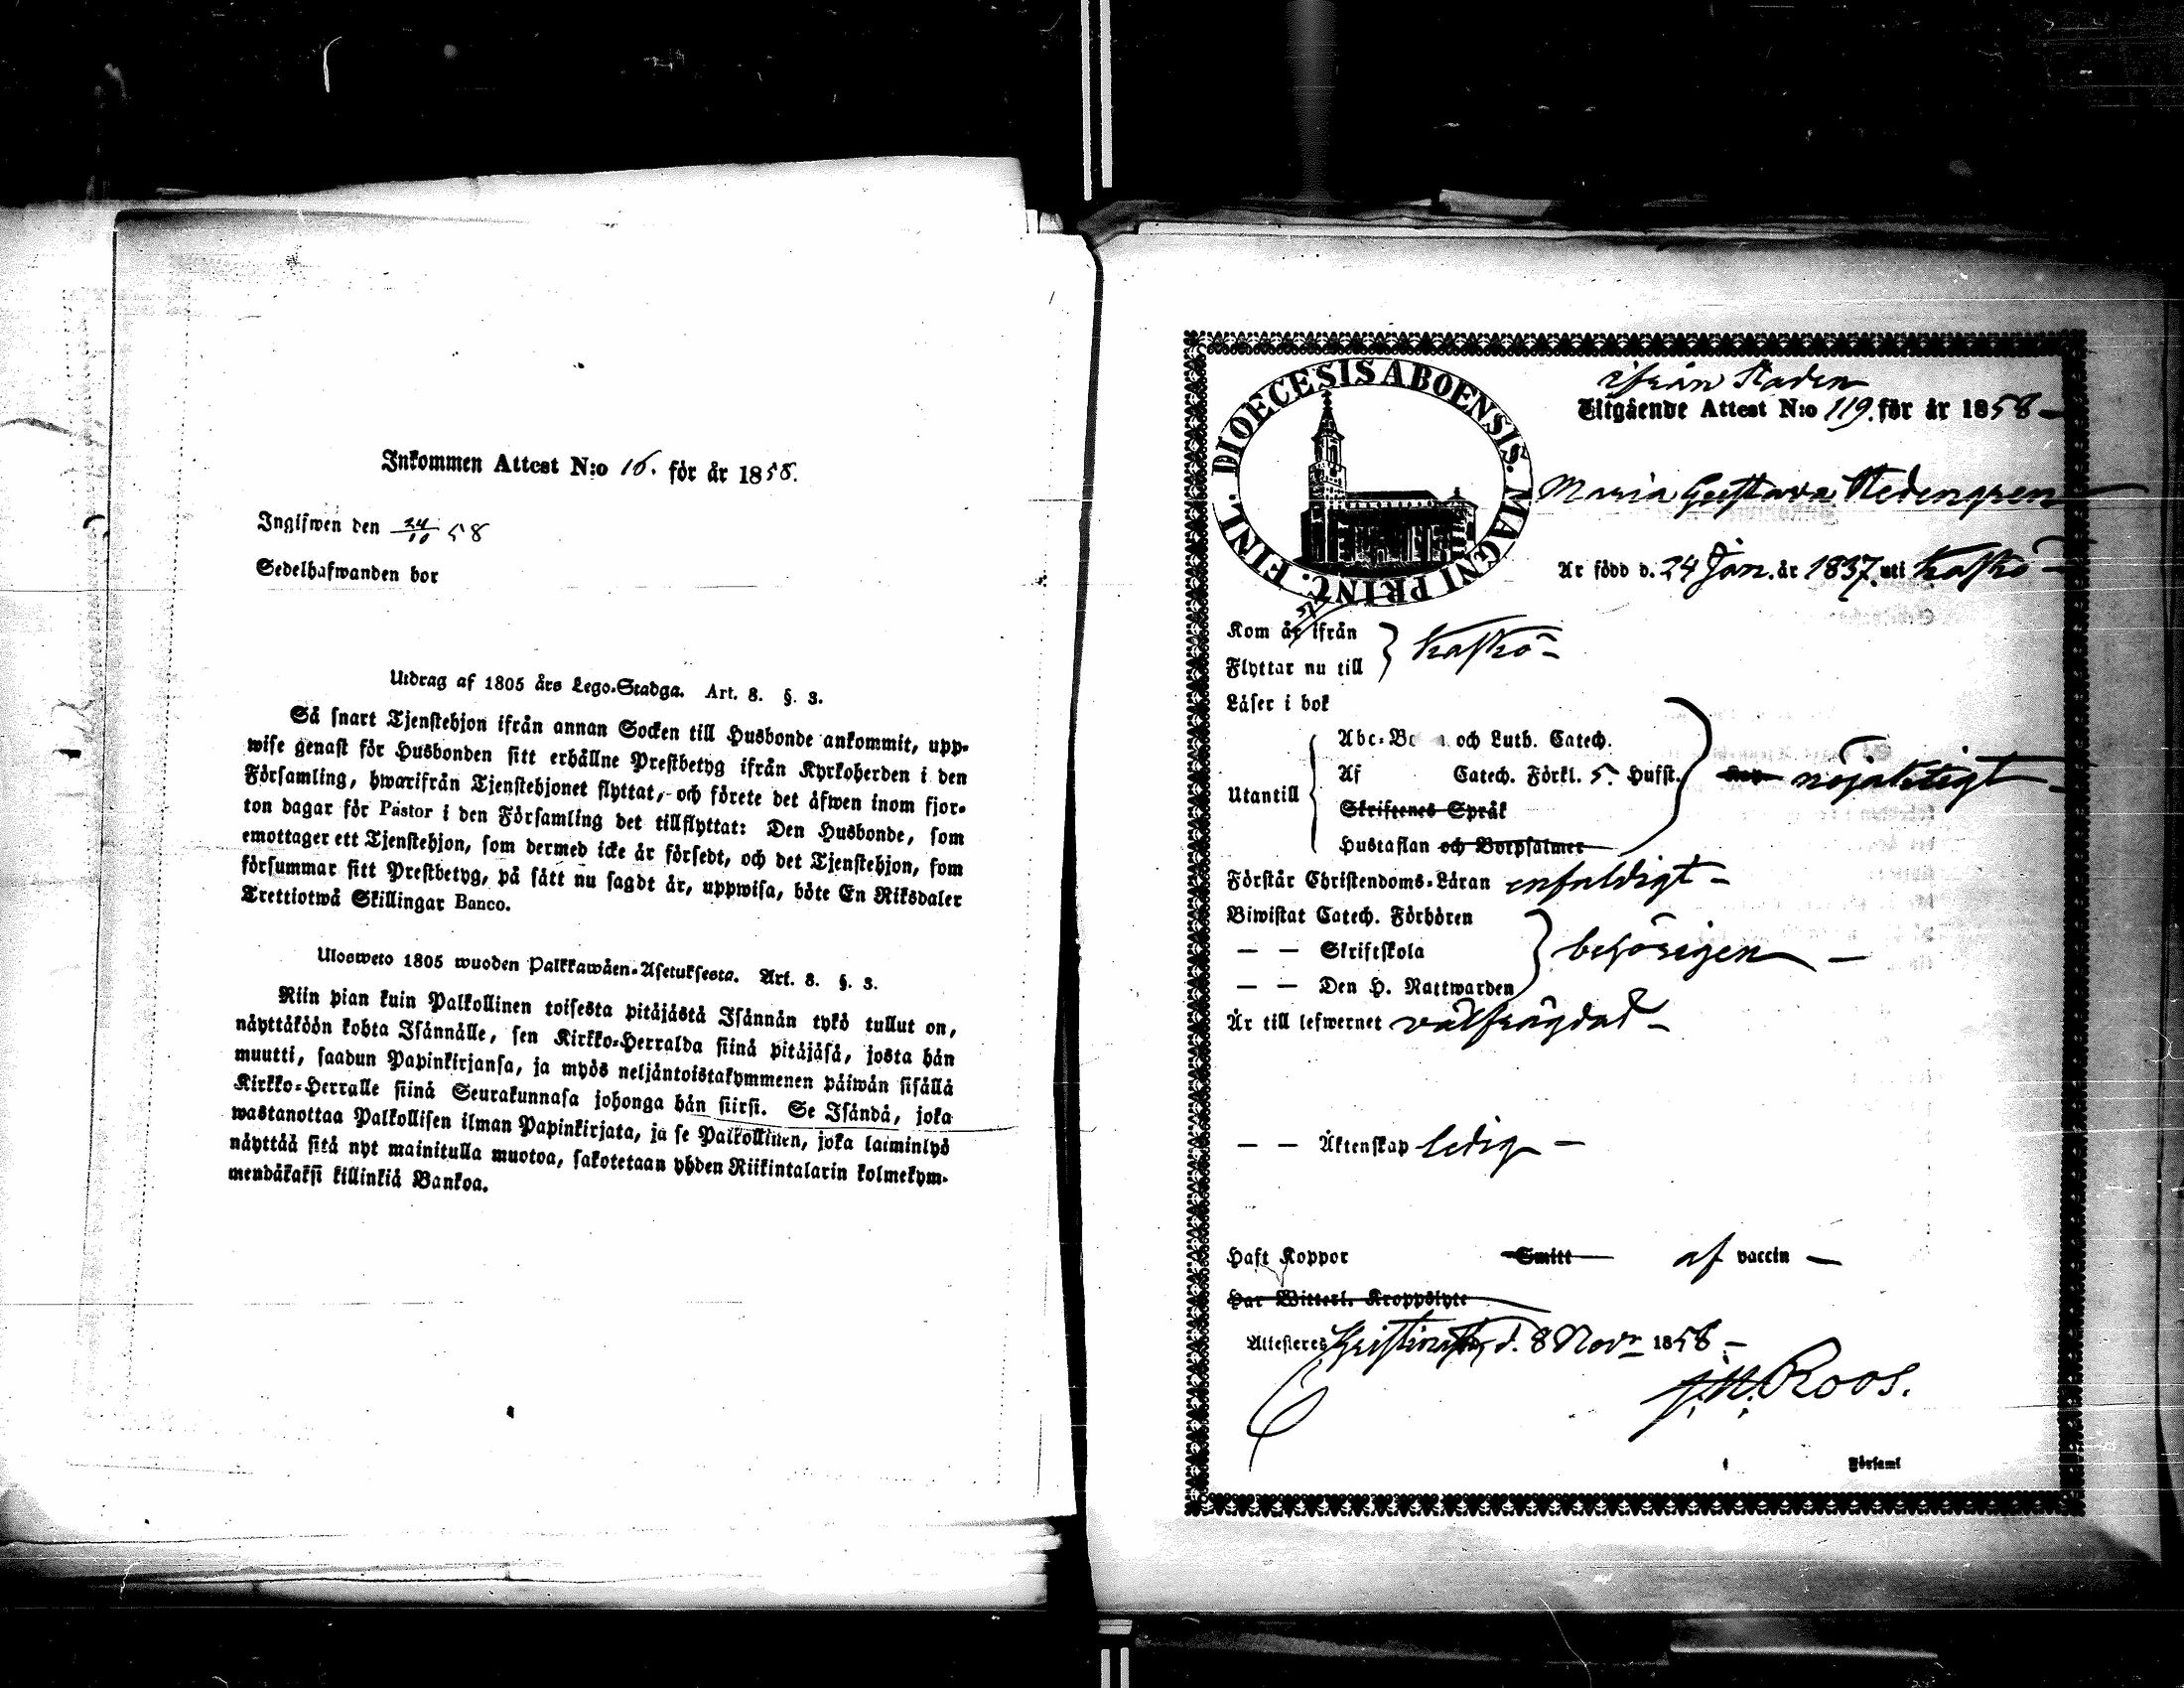 Inkommen Attest N:o 16. för år 1858.
Inglifwen den 24/10 58
Sedelhafwanden bor
Utdrag af 1805 års Lego-Stadga. Art. 8. §. 3.
Så snart Tjenstehjon ifrån annan Socken till Husbonde ankommit, upp-
wise genast för Husbonden sitt erhållne Prestbetyg ifrån Kyrkoherden i den
Församling, hwarifrån Tjenstehjonet flyttat, och förete det äfwen inom fjor-
ton dagar för Pastor i den Församling det tillflyttat: Den Husbonde, som
emottager ett Tjenstehjon, som dermed icke är försedt, och det Tjenstehjon, som
försummar sitt Prestbetyg, på sätt nu sagdt är, uppwisa, böte En Riksdaler
Trettiotwå Skillingar Banco.
Ulosweto 1805 wuoden Palkkawäen-Asetuksesta. Art. 8. §. 3.
Niin pian kuin Palkollinen toisesta pitäjästä Isännän tykö tullut on,
näyttäköön kohta Isännälle, sen Kirkko-Herralda siinä pitäjäsä, josta hän
muutti, saadun Papinkirjansa, ja myös neljäntoistakymmenen päiwän sisällä
Kirkko-Herralle siinä Seurakunnasa johonga hän siirsi. Se Isändä, joka
wastanottaa Palkollisen ilman Papinkirjata, ja se Palkollinen, joka laiminlyö
näyttää sitä nyt mainitulla muotoa, sakotetaan yhden Riikintalarin kolmekym-
mendäkaksi killinkiä Bankoa.
DIOECESIS ABOENSIS. MAGNI PRINC. FINL.
ifrån Staden
Utgående Attest N:o 119. för år 1858
Maria Gustava Stedengren
Är född d. 24 Jan. år 1837. uti Kaskö
Kom år ifrån
Flyttar nu till } Kaskö
Läser i bok
Abc-Bo och Luth. Catech.
Af Catech. Förkl. 5. Hufst.
Utantill nöjaktigt
Skriftenes Språk
Hustaflan och Botpsalmer
Förstår Christendoms-Läran enfaldigt
Biwistat Catech. Förhören
— — Skriftskola behörigen
— — Den H. Nattwarden
Är till lefwernet välfrägdad
— — Äktenskap ledig
Haft Koppor Smitt af vaccin
Har Witterl. Kroppslyte
Attesteres Christinestad, d. 8 Novr 1858
J. N. Roos.
Församl